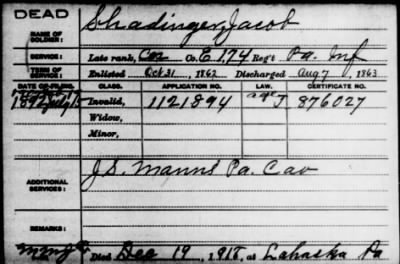 DEAD
Shadinger, Jacob
NAME OF SOLDIER:
SERVICE: Late rank, Co. E 174 Reg't Pa. Inf
TERM OF SERVICE: Enlisted Oct 31, 1862 Discharged Aug 7, 1863
DATE OF FILING. CLASS. APPLICATION NO. LAW. CERTIFICATE NO.
1892 July Invalid, 1121894 J 876027
Widow,
Minor,
J.S. Manns' Pa. Cav
ADDITIONAL SERVICES:
REMARKS:
Died Dec 19, 1918, at Lahaska Pa